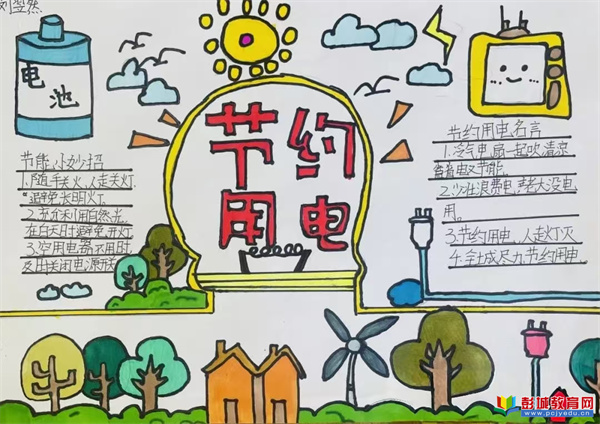 电池
节约
用电
节能小妙招
1.随手关火，人走关灯.
避免长明灯.
2.充分利用自然光.
在白天时避免开灯
3.家用电器不用时
及时关闭电源开关
节约用电名言
1.冷气电扇一起吹清凉
省电又节能.
2.少壮浪费电，老大没电
用。
3.节约用电，人走灯灭
4.全社成尽力节约用电
彭诚教育网
www.pcjyedu.cn